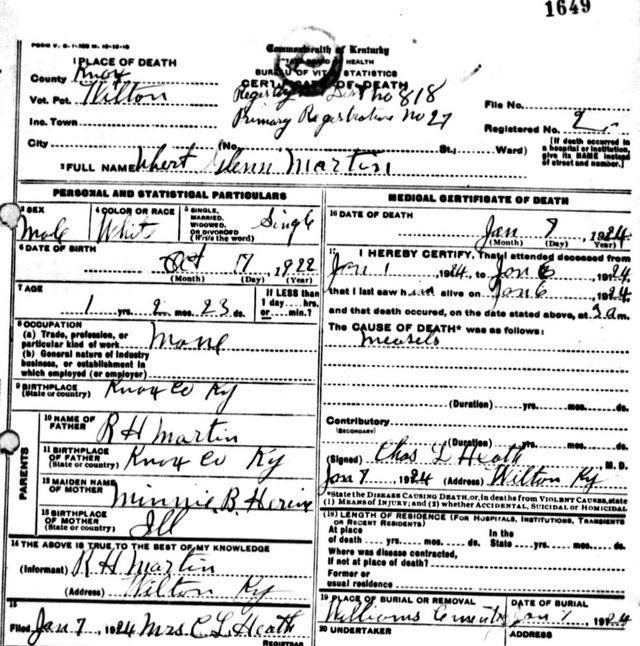 1649
FORM V. S. 1-
Commonwealth of Kentucky
HEALTH
BUREAU OF VITAL STATISTICS
CERTIFICATE OF DEATH
1 PLACE OF DEATH
County Knox
Vot. Pct. Wilton
Registration Dist No 818
Primary Registration No 27
File No.
Registered No. 2
Inc. Town
City (No. St.; Ward)
[If death occurred in a hospital or institution, give its NAME instead of street and number.]
2 FULL NAME Glenn Martin
PERSONAL AND STATISTICAL PARTICULARS
3 SEX Male
4 COLOR OR RACE White
5 SINGLE, MARRIED, WIDOWED, OR DIVORCED (Write the word) Single
6 DATE OF BIRTH Oct 17, 1922
(Month) (Day) (Year)
7 AGE
1 yrs. 2 mos. 23 ds.
If LESS than 1 day....hrs. or....min.?
8 OCCUPATION
(a) Trade, profession, or particular kind of work None
(b) General nature of industry business, or establishment in which employed (or employer)
9 BIRTHPLACE (State or country) Knox Co Ky
PARENTS
10 NAME OF FATHER R H Martin
11 BIRTHPLACE OF FATHER (State or country) Knox Co Ky
12 MAIDEN NAME OF MOTHER Minnie B.
13 BIRTHPLACE OF MOTHER (State or country) Ill
14 THE ABOVE IS TRUE TO THE BEST OF MY KNOWLEDGE
(Informant) R H Martin
(Address) Wilton Ky
15
Filed Jan 7, 1924 Mrs. C L Heath
REGISTRAR
MEDICAL CERTIFICATE OF DEATH
16 DATE OF DEATH
Jan 7, 1924
(Month) (Day) (Year)
17 I HEREBY CERTIFY, That I attended deceased from
Jan 1, 1924, to Jan 6, 1924
that I last saw him alive on Jan 6, 1924
and that death occured, on the date stated above, at 3 am.
The CAUSE OF DEATH* was as follows:
Measels
(Duration) yrs. mos. ds.
Contributory
(SECONDARY)
(Duration) yrs. mos. ds.
(Signed) Chas L Heath M. D.
Jan 7 1924 (Address) Wilton Ky
*State the DISEASE CAUSING DEATH, or, in deaths from VIOLENT CAUSES, state
(1) MEANS OF INJURY; and (2) whether ACCIDENTAL, SUICIDAL or HOMICIDAL
(18) LENGTH OF RESIDENCE (FOR HOSPITALS, INSTITUTIONS, TRANSIENTS OR RECENT RESIDENTS)
At place of death yrs. mos. ds. In the State yrs. mos. ds.
Where was disease contracted,
If not at place of death?
Former or usual residence
19 PLACE OF BURIAL OR REMOVAL
Williams Cemetery
DATE OF BURIAL
Jan 1924
20 UNDERTAKER
ADDRESS